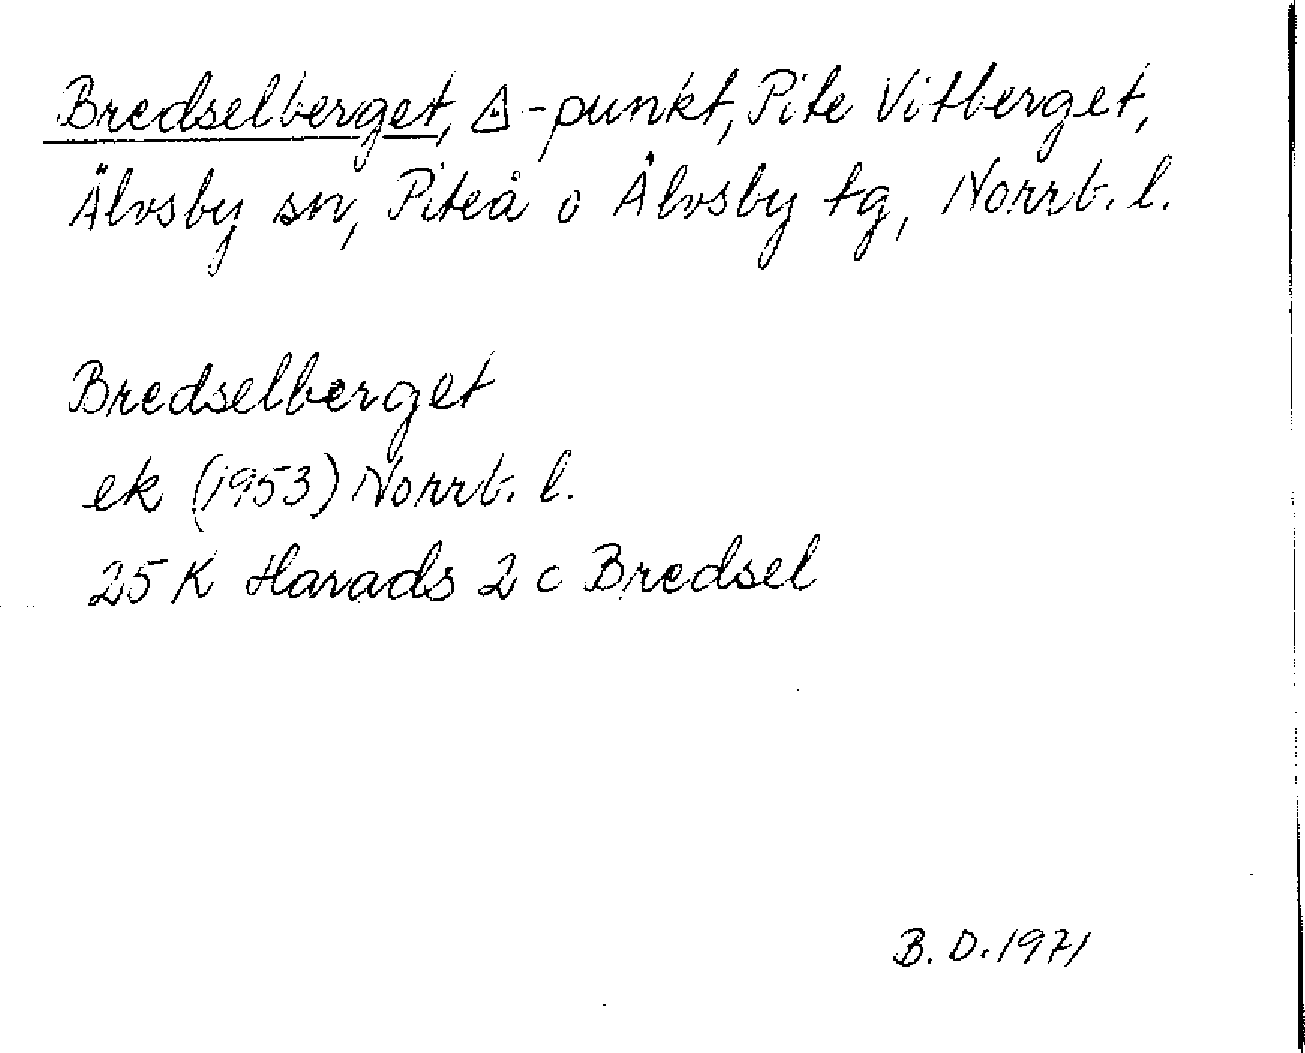 Bredselberget, △-punkt, Pite Vitberget,
Älvsby sn, Piteå o Älvsby tg, Norrb. l.
Bredselberget
ek (1953) Norrb. l.
25 K Harads 2 c Bredsel
B. D. 1971